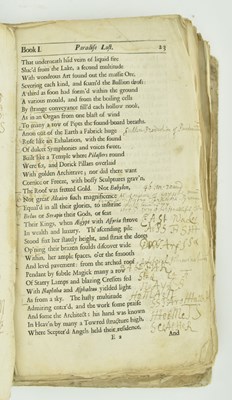 Book I. Paradise Lost. 23
That underneath had veins of liquid fire
Sluc'd from the Lake, a second multitude
With wondrous Art found out the massie Ore,
Severing each kind, and scum'd the Bullion dross:
A third as soon had form'd within the ground
A various mould, and from the boiling cells
By strange conveyance fill'd each hollow nook,
As in an Organ from one blast of wind
To many a row of Pipes the sound-board breaths.
Anon out of the Earth a Fabrick huge
Rose like an Exhalation, with the sound
Of dulcet Symphonies and voices sweet,
Built like a Temple, where Pilasters round
Were set, and Dorick Pillars overlaid
With golden Architrave; nor did there want
Cornice or Freeze, with bossy Sculptures grav'n,
The Roof was fretted Gold. Not Babylon,
Nor great Alcairo such magnificence
Equal'd in all their glories, to inshrine
Belus or Serapis their Gods, or seat
Their Kings, when Ægypt with Assyria strove
In wealth and luxury. Th' ascending pile
Stood fixt her stately highth, and strait the dores
Op'ning their brazen foulds discover wide
Within, her ample spaces, o're the smooth
And level pavement: from the arched roof
Pendant by subtle Magick many a row
Of Starry Lamps and blazing Cressets fed
With Naphtha and Asphaltus yielded light
As from a sky. The hasty multitude
Admiring enter'd, and the work some praise
And some the Architect: his hand was known
In Heav'n by many a Towred structure high,
Where Scepter'd Angels held their residence,
E 2 And